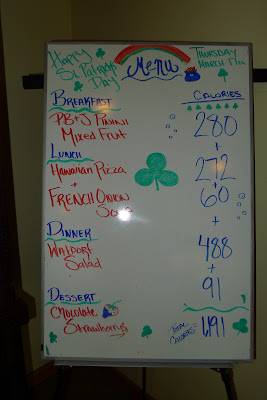 Happy
St. Patricks
Day
Menu
Thursday
March 17th
Breakfast
Calories
PB+J Panini
Mixed Fruit
280
+
Lunch
Hawaiian Pizza
272
+
+
French Onion
Soup
60
+
Dinner
Waldorf
Salad
488
+
91
Dessert
Chocolate
Strawberrys
Total
Calories=
1,191